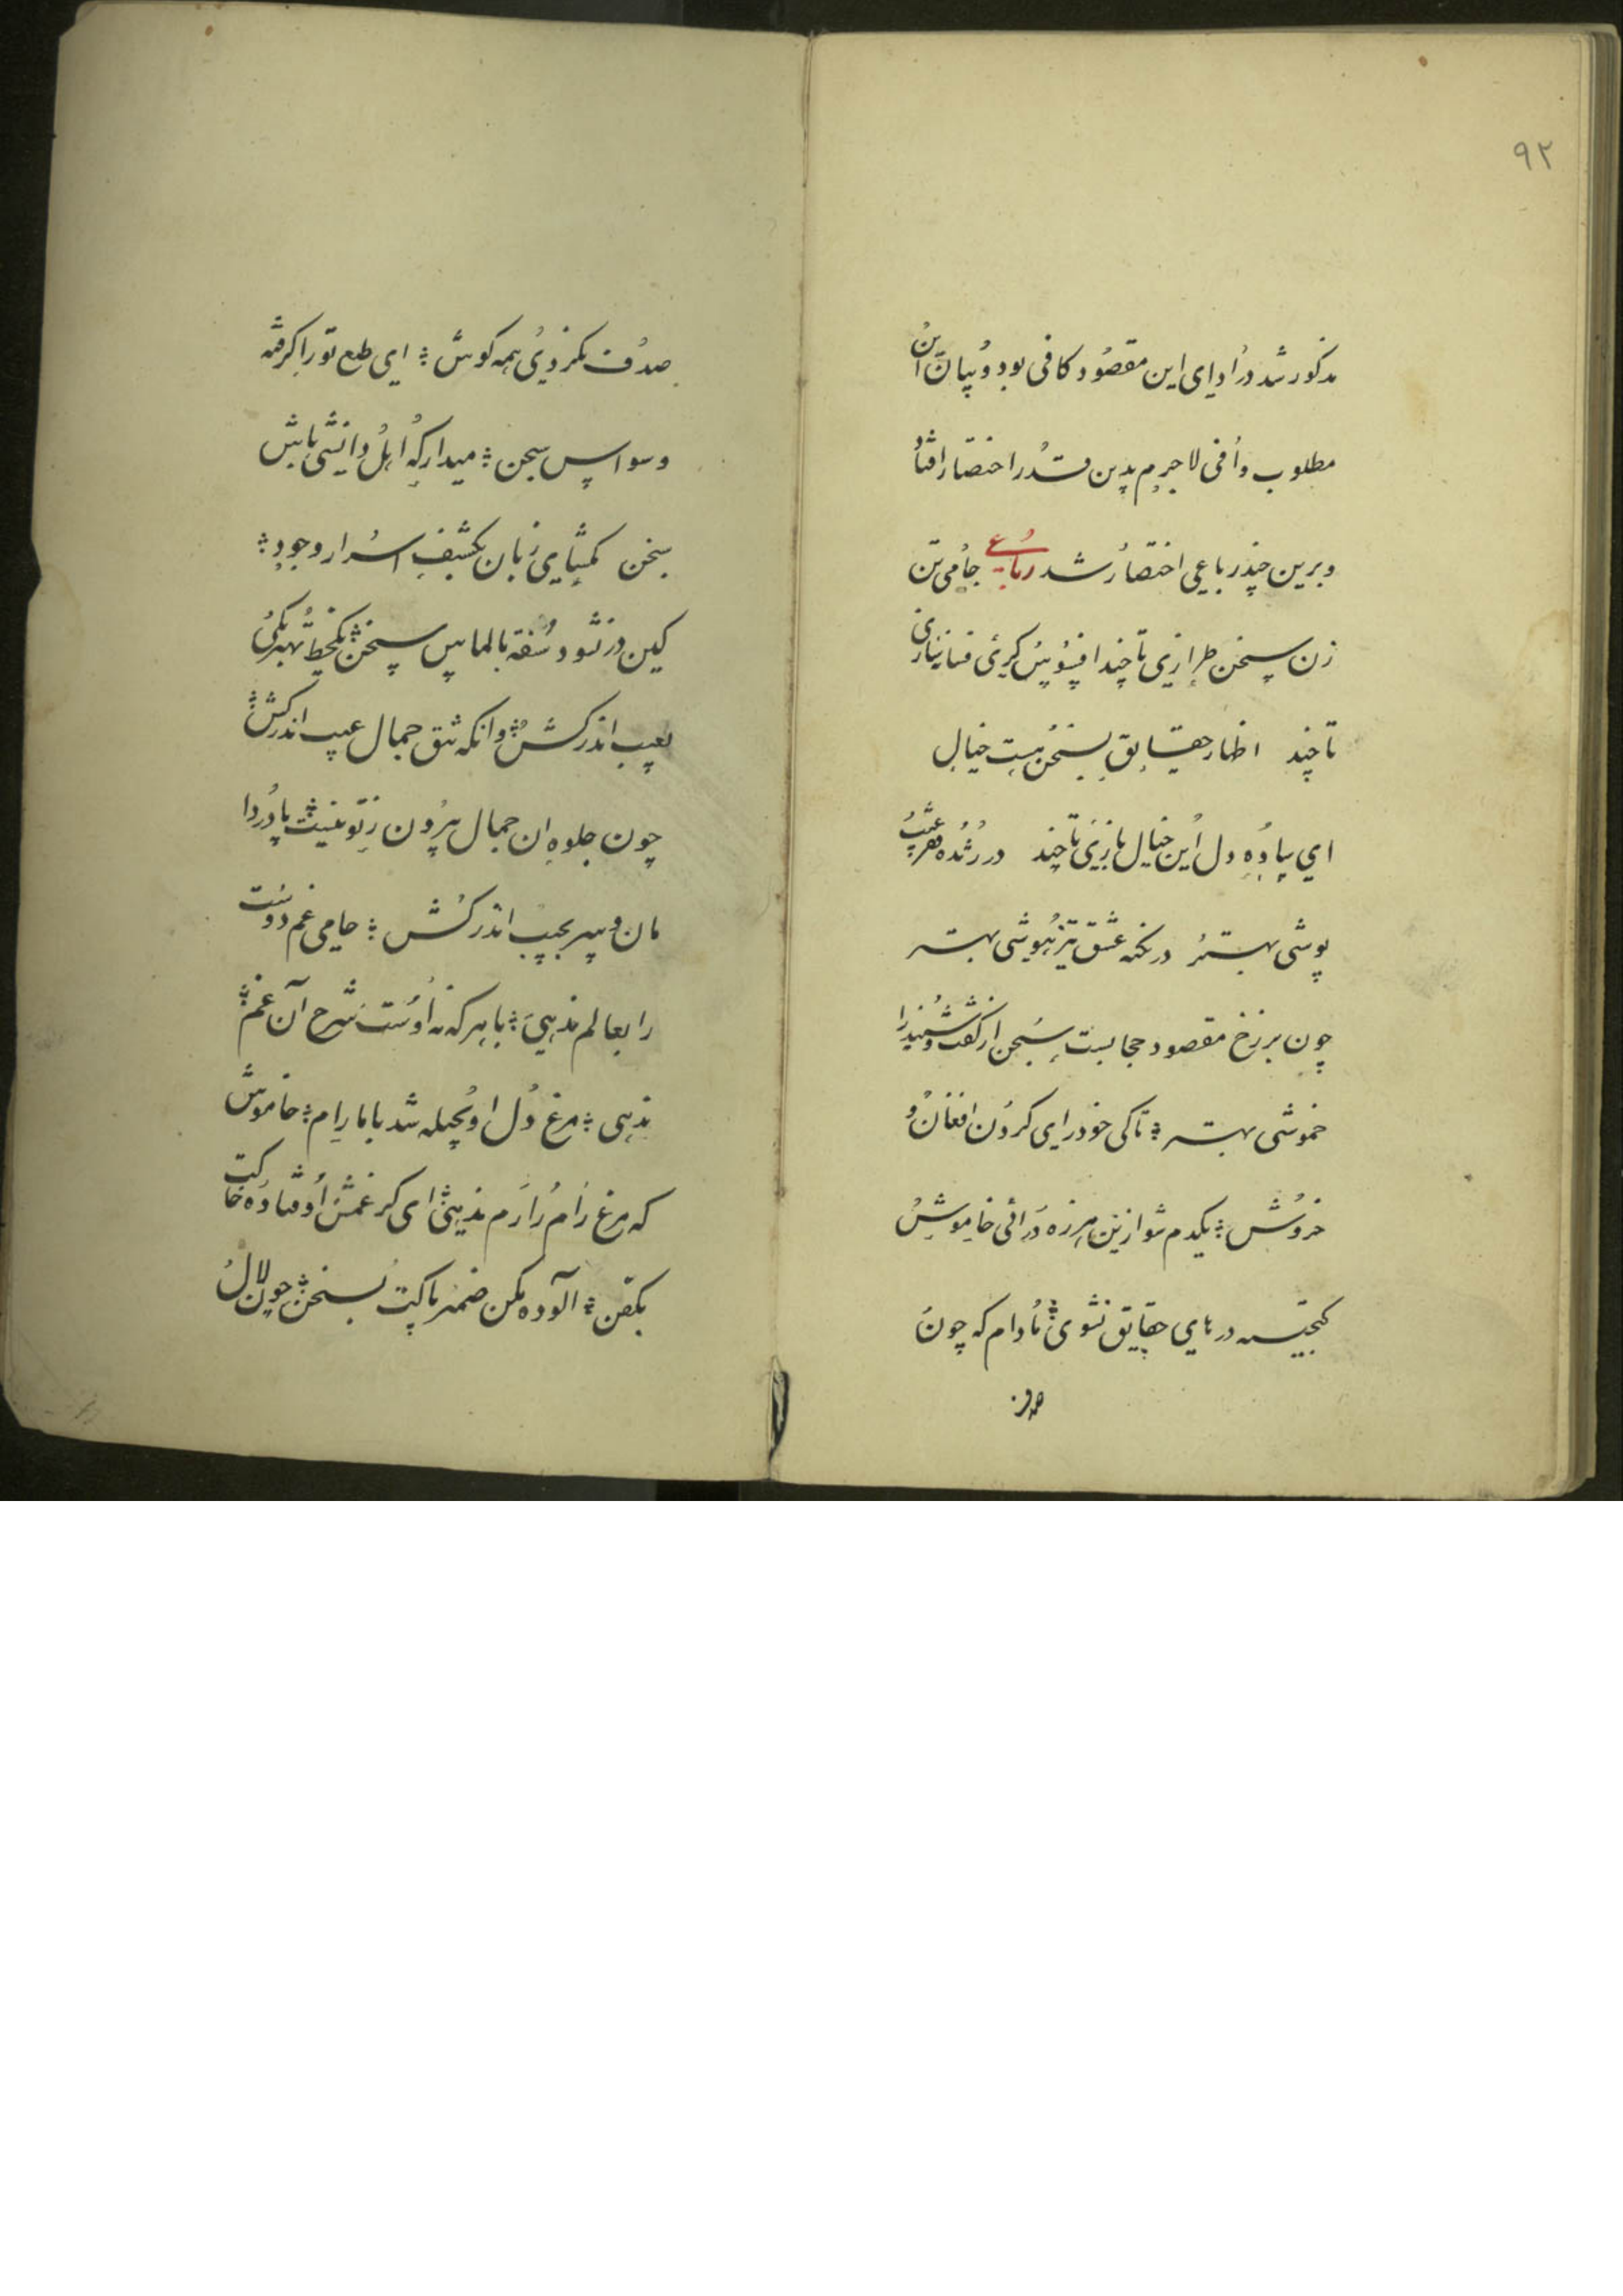 ۹۲
مذکور شد در ادای این مقصود کافی بود و بیان این
مطلوب وافی لاجرم بدین قدر اختصار افتاد
و برین چند رباعی اختصار شد رباعی جامی تن
زن سخن طرازی تا چند افسونگری و فسانه سازی
تا چند اظهار حقایق بسخن هست خیال
ای ساده دل این خیال بازی تا چند در ژنده فقر عیب
پوشی بهتر در نکته عشق تیزهوشی بهتر
چون بر رخ مقصود حجابست سخن از گفت و شنید را
خموشی بهتر ؞ تا کی خو درای کردن افغان و
خروش ؞ یکدم شو ازین هرزه درائی خاموش
گنجینه درهای حقایق نشوی ؞ مادام که چون
صدف
صدف نکردی همه گوش ؞ ای طبع تو را گرفته
وسواس سخن ؞ میدار که اهل دانشی پاس
سخن مگشای زبان بکشف اسرار وجود ؞
کین در نشود سفته بالماس سخن ؞ یکخط بهنر یکی
بعیب اندر کش ؞ وانکه تتق جمال عیب اندر کش ؞
چون جلوه آن جمال بیرون ز تو نیست ؞ پا در دا
مان و سر بجیب اندر کش ؞ جامی غم دوست
را بعالم ندهی ؞ با هر که نه اوست شرح آن غم ؞
ندهی ؞ مرغ دل او بحیله شد با ما رام ؞ خاموش
که مرغ رام را رم ندهی ؞ ای کز غمش اوفتاده خاکت
بکفن ؞ آلوده مکن ضمیر پاکت بسخن ؞ چون لال